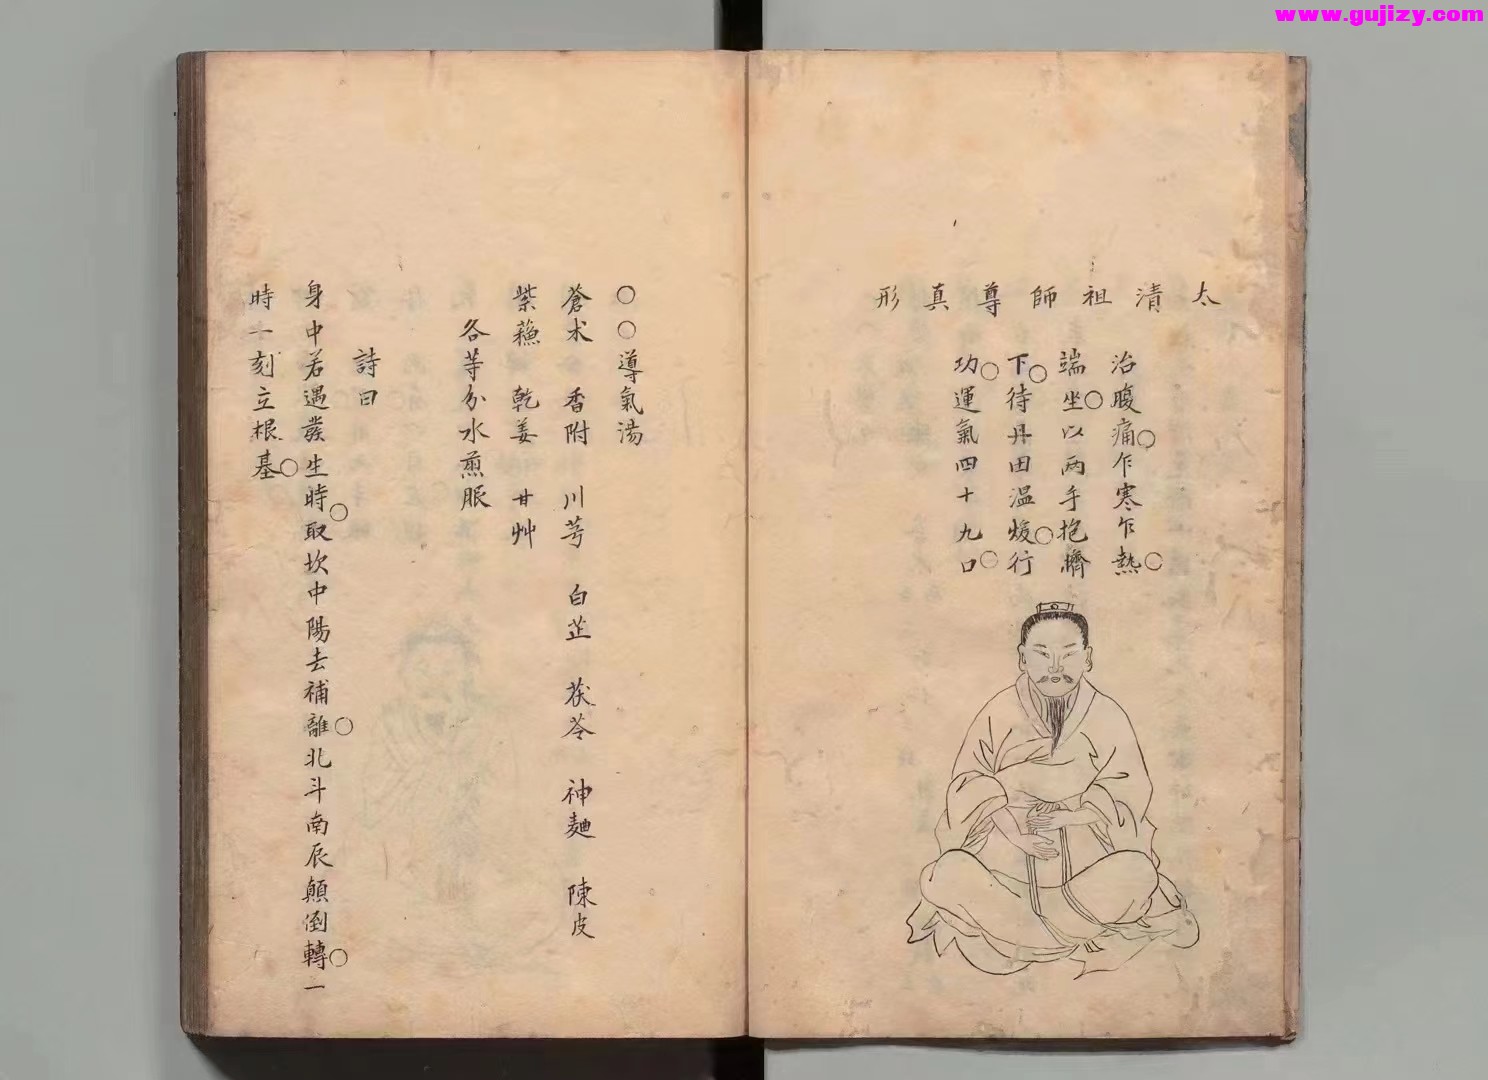 www.gujizy.com
太清祖師尊真形
治腹痛○乍寒乍熱○
端坐○以兩手抱臍
下○待丹田溫煖○行
功運氣○四十九口○
○○導氣湯
蒼朮 香附 川芎 白芷 茯苓 神麯 陳皮
紫蘓 乾姜 甘艸
各等分水煎服
詩曰
身中若遇發生時○取坎中陽去補離○北斗南辰顛倒轉○一
時一刻立根基○